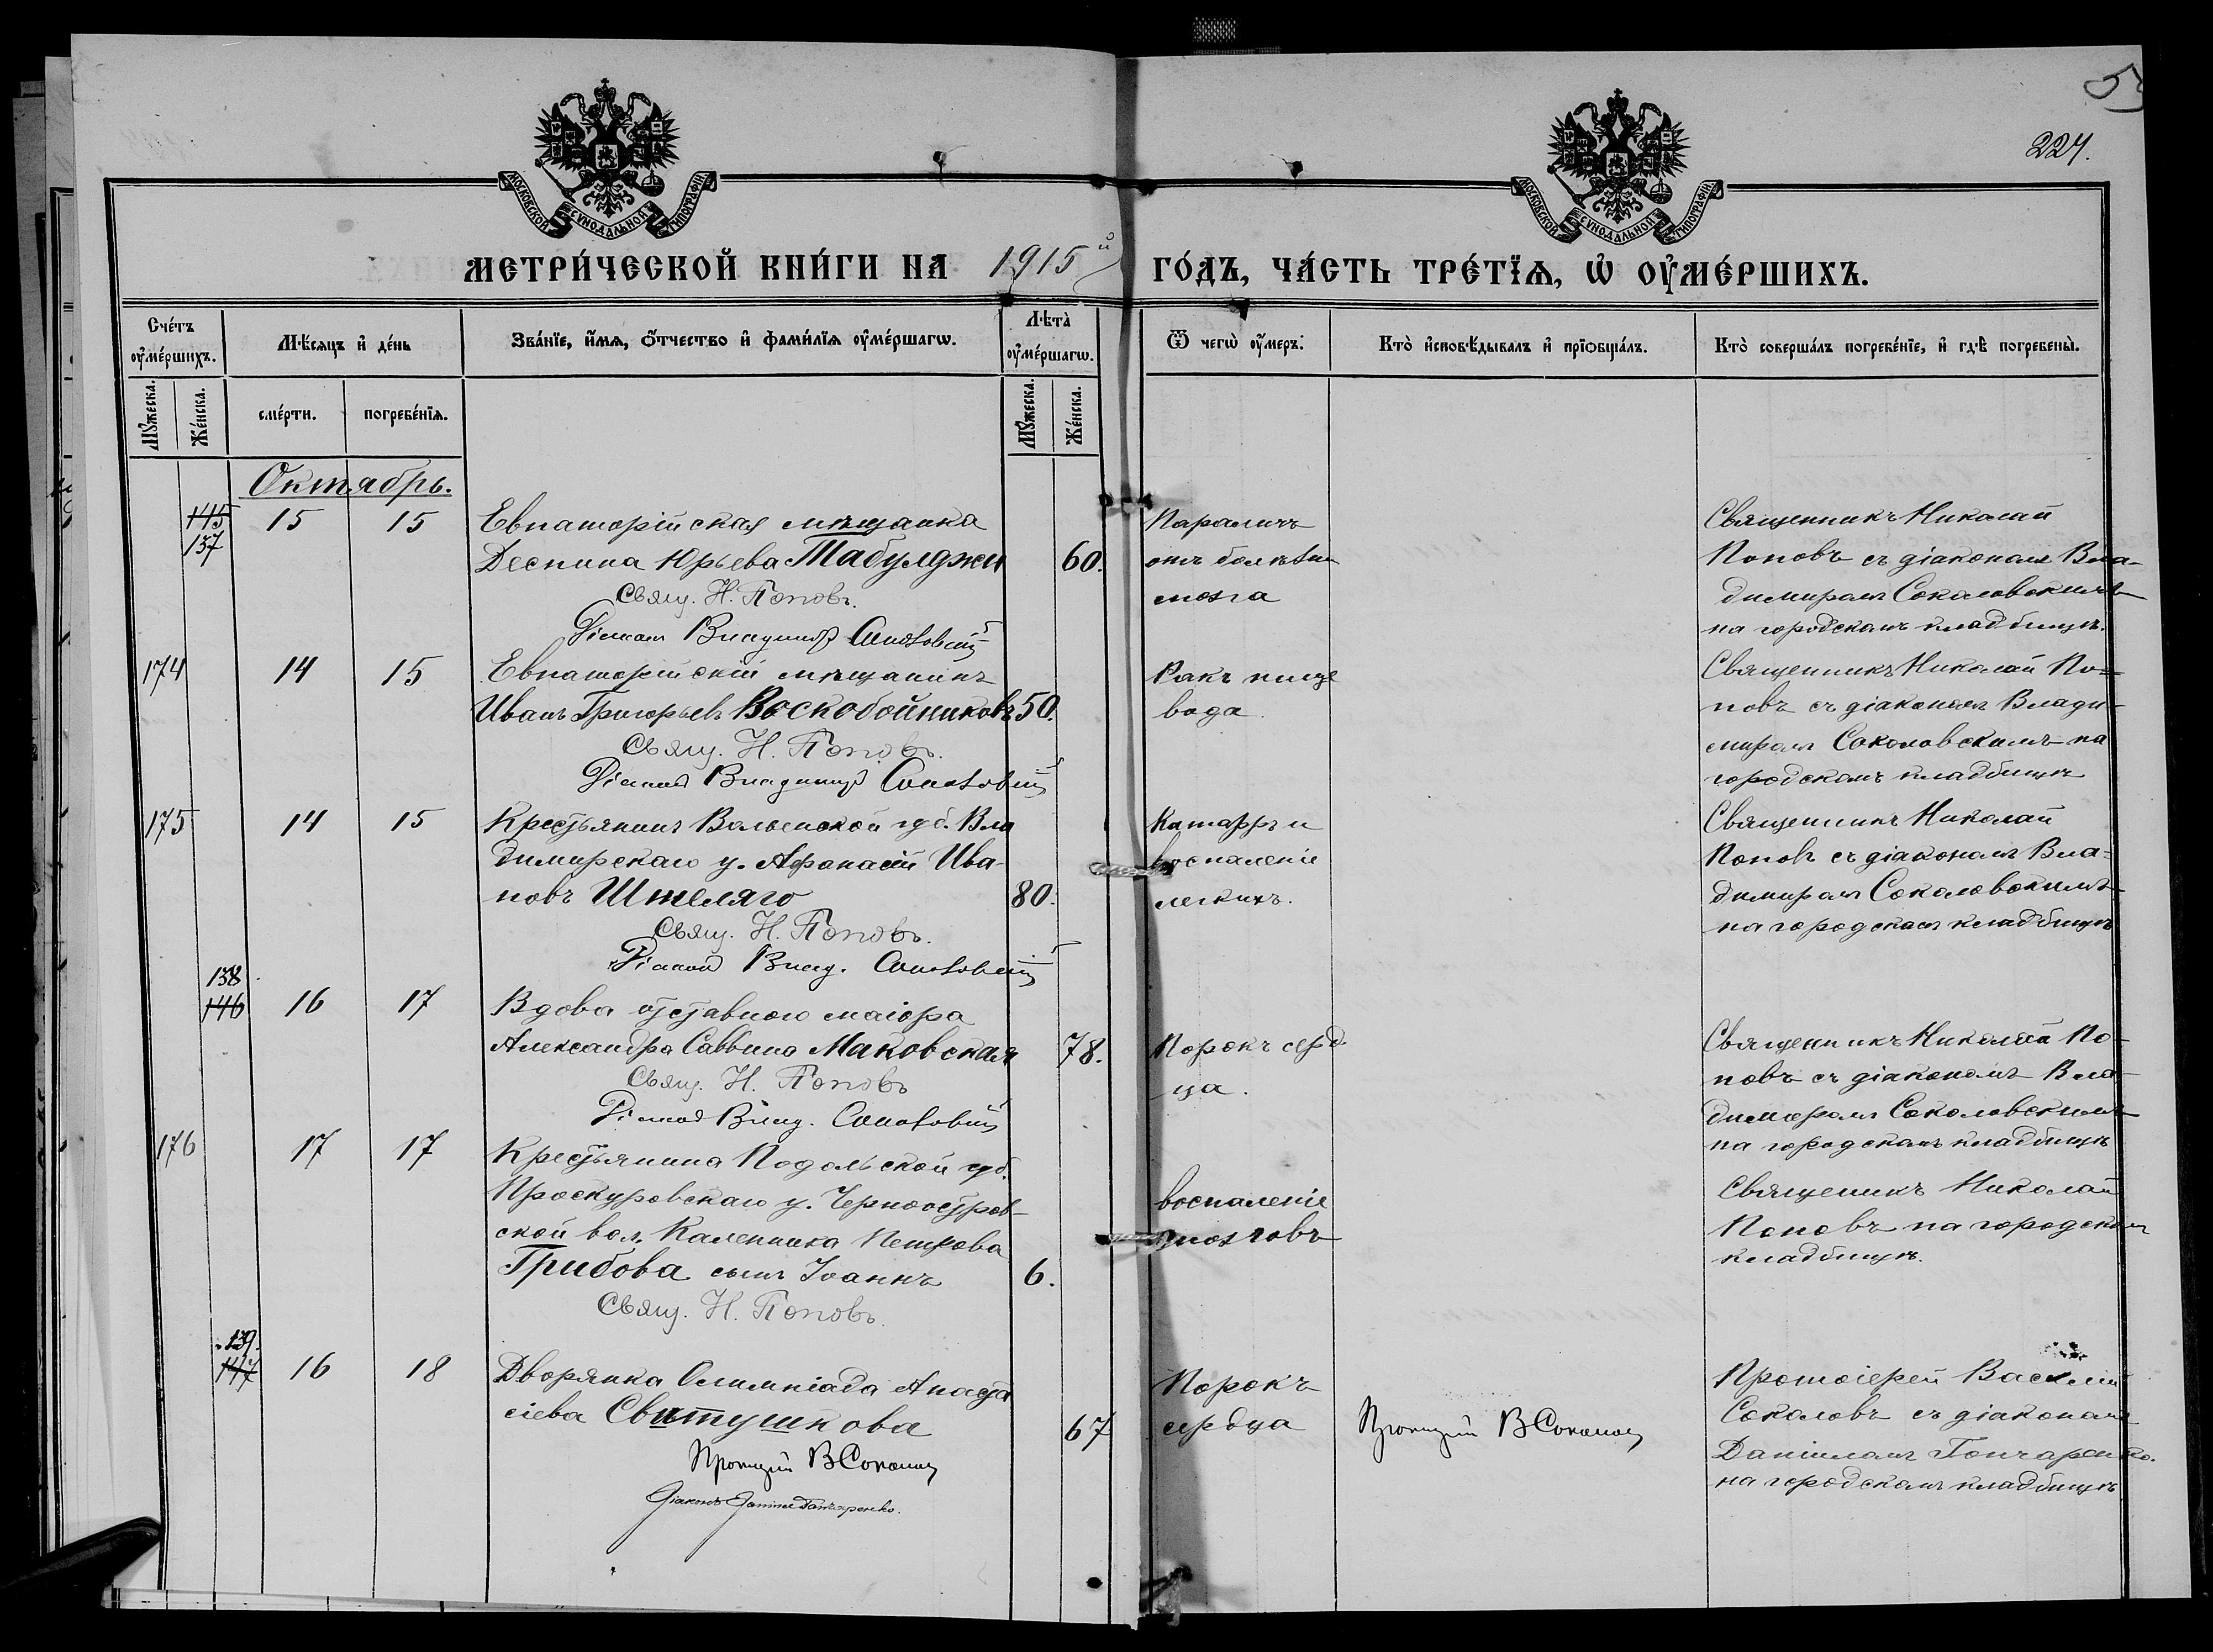 224.
МОСКОВСКОЙ СѴНОДАЛЬНОЙ ТИПОГРАФІИ
МОСКОВСКОЙ СѴНОДАЛЬНОЙ ТИПОГРАФІИ
МЕТРИ́ЧЕСКОЙ КНИ́ГИ НА 1915й ГО́ДЪ, ЧА́СТЬ ТРЕ́ТЇѦ, Ѡ҆ ОУ҆МЕ́РШИХЪ.
Сче́тъ оу҆ме́ршихъ.
Мꙋ́жеска.
Же́нска.
Мѣ́сяцъ и҆ де́нь
сме́рти.
погребе́нїѧ.
Зва́нїе, и҆́мѧ, ѻ҆́тчество и҆ фами́лїѧ оу҆ме́ршагѡ.
Лѣ́та̀ оу҆ме́ршагѡ.
Мꙋ́жеска.
Же́нска.
Ѿ чегѡ̀ оу҆́меръ:
Кто̀ и҆сповѣ́дывалъ и҆ прїѻбща́лъ.
Кто̀ соверша́лъ погребе́нїе, и҆ гдѣ̀ погребены̀.
Октябрь.
145
137
15 15
Евпаторійская мѣщанка
Деспина Юрьева Табулджи 60.
Свящ. Н. Поповъ.
Діаконъ Владиміръ Соколовскій
Параличъ
отъ болѣзни
мозга
Священникъ Николай
Поповъ съ діакономъ Вла-
димиромъ Соколовскимъ
на городскомъ кладбищѣ.
174 14 15
Евпаторійскій мѣщанинъ
Иванъ Григорьевъ Воскобойниковъ 50.
Свящ. Н. Поповъ.
Діаконъ Владиміръ Соколовскій
Ракъ пище
вода
Священникъ Николай По-
повъ съ діакономъ Влади-
миромъ Соколовскимъ на
городскомъ кладбищѣ
175 14 15
Крестьянинъ Волынской губ. Вла
димирскаго у. Афанасій Ива-
новъ Штеляго 80.
Свящ. Н. Поповъ.
Діаконъ Влад. Соколовскій
Катарръ и
воспаленіе
легкихъ.
Священникъ Николай
Поповъ съ діакономъ Вла-
димиромъ Соколовскимъ
на городскомъ кладбищѣ
138
146
16 17
Вдова отставного маіора
Александра Саввина Маковская 78.
Свящ. Н. Поповъ
Діаконъ Влад. Соколовскій
Порокъ серд
ца.
Священникъ Николай По-
повъ съ діакономъ Вла-
димиромъ Соколовскимъ
на городскомъ кладбищѣ
176 17 17
Крестьянина Подольской губ.
Проскуровскаго у. Черноостров-
ской вол. Каленника Петрова
Грибова сынъ Іоаннъ 6.
Свящ. Н. Поповъ.
воспаленіе
мозговъ
Священникъ Николай
Поповъ на городскомъ
кладбищѣ.
139.
147
16 18
Дворянка Олимпіада Анаста
сіева Свитушкова 67
Протоіерей В Соколовъ
Діаконъ Даніилъ Гончаренко.
Порокъ
сердца
Протоіерей В Соколовъ
Протоіерей Василій
Соколовъ съ діакономъ
Даніиломъ Гончаренко.
на городскомъ кладбищѣ